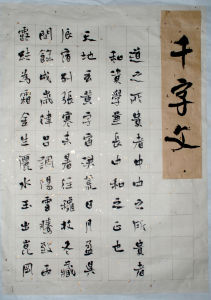 千字文
道之所貴者中中之所貴者
和質學兼長中和之正也
天地玄黃宇宙洪荒日月盈昃
辰宿列張寒來暑往秋收冬藏
閏餘成歲律呂調陽雲騰致雨
露結為霜金生麗水玉出崑岡